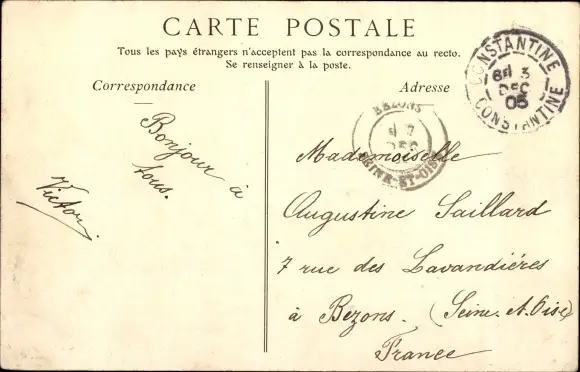 CARTE POSTALE
Tous les pays étrangers n'acceptent pas la correspondance au recto.
Se renseigner à la poste.
Correspondance
Bonjour à
tous.
Victor
Adresse
Mademoiselle
Augustine Saillard
7 rue des Lavandiéres
à Bezons. (Seine. et. Oise)
France
CONSTANTINE
3
DEC
05
CONSTANTINE
BEZONS
7
DEC
SEINE-ET-OISE